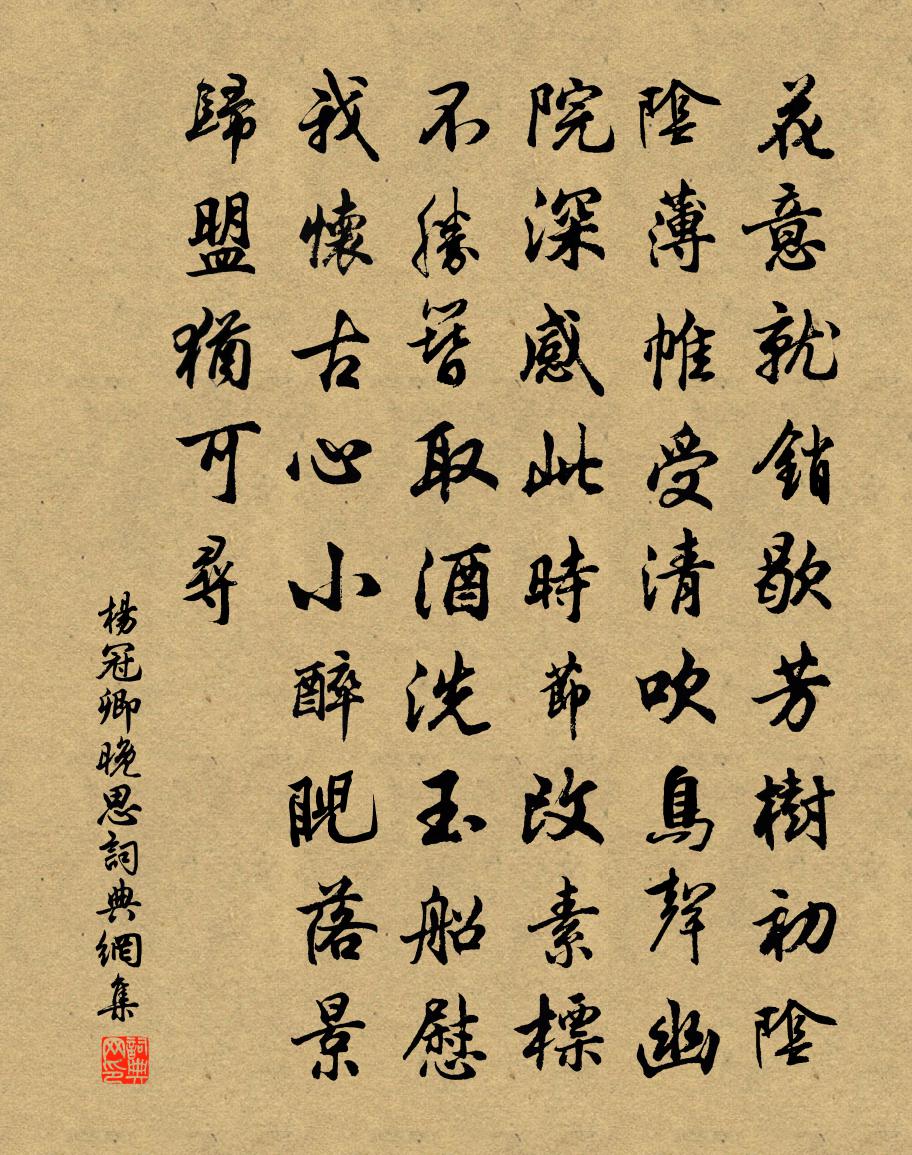 花意就銷歇芳樹初陰
陰薄帷受清吹鳥聲幽
院深感此時節改素標
不勝簪取酒洗玉船慰
我懷古心小醉睨落景
歸盟猶可尋
楊冠卿晚思詞典網集
詞典网印